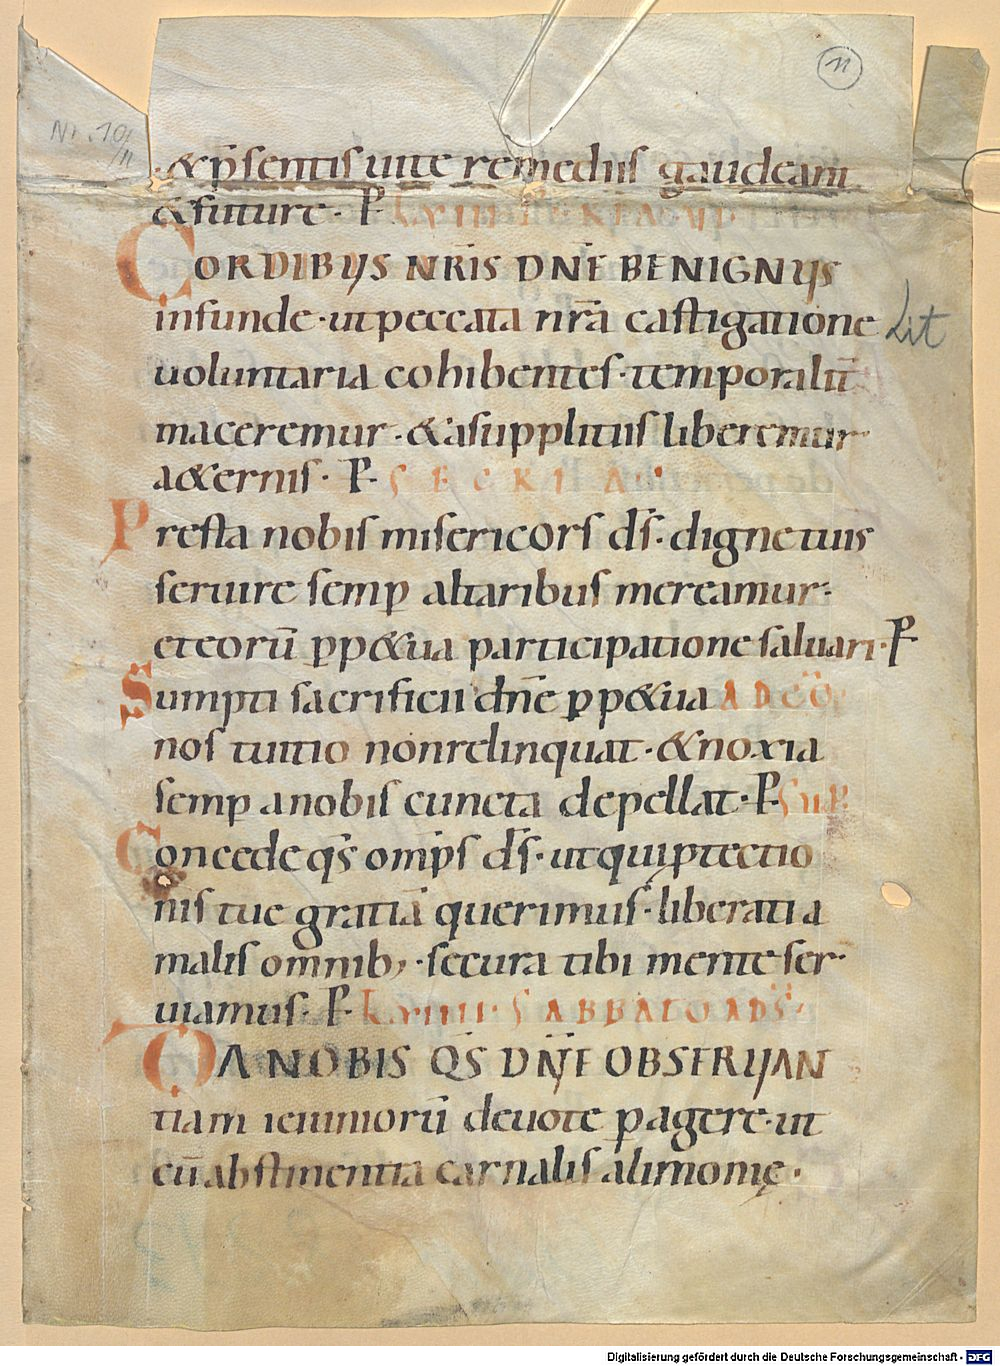 11
Nr. 10/11
&p̄sentis uite remediis gaudeam
&future. P. LXVIII FERIA VI.
CORDIBUS NRĪS DNĒ BENIGNUS
infunde· ut peccata nrā castigatione
Lit
uoluntaria cohibentes· temporalit̄
maceremur· & asuppliciis liberemur
a&ernis. P. SECRETA
Presta nobis misericors d̄s· digne tuis
seruire semp altaribus mereamur·
eteorū pp&ua participatione saluari· P
Sumpti sacrificii dnē pp&ua AD CŌ
nos tuitio nonrelinquat· & noxia
semp anobis cuncta depellat· P. SUP
Concede qs̄ omp̄s d̄s· utquiptectio
nis tue gratiā querimus· liberati a
malis omnib; · secura tibi mente ser
uiamus. P. LXVIIII SABBATO AD S
DA NOBIS QS̄ DNĒ OBSERUAN
tiam ieiuniorū deuote pagere· ut
cū abstinentia carnalis alimonię·
Digitalisierung gefördert durch die Deutsche Forschungsgemeinschaft - DFG